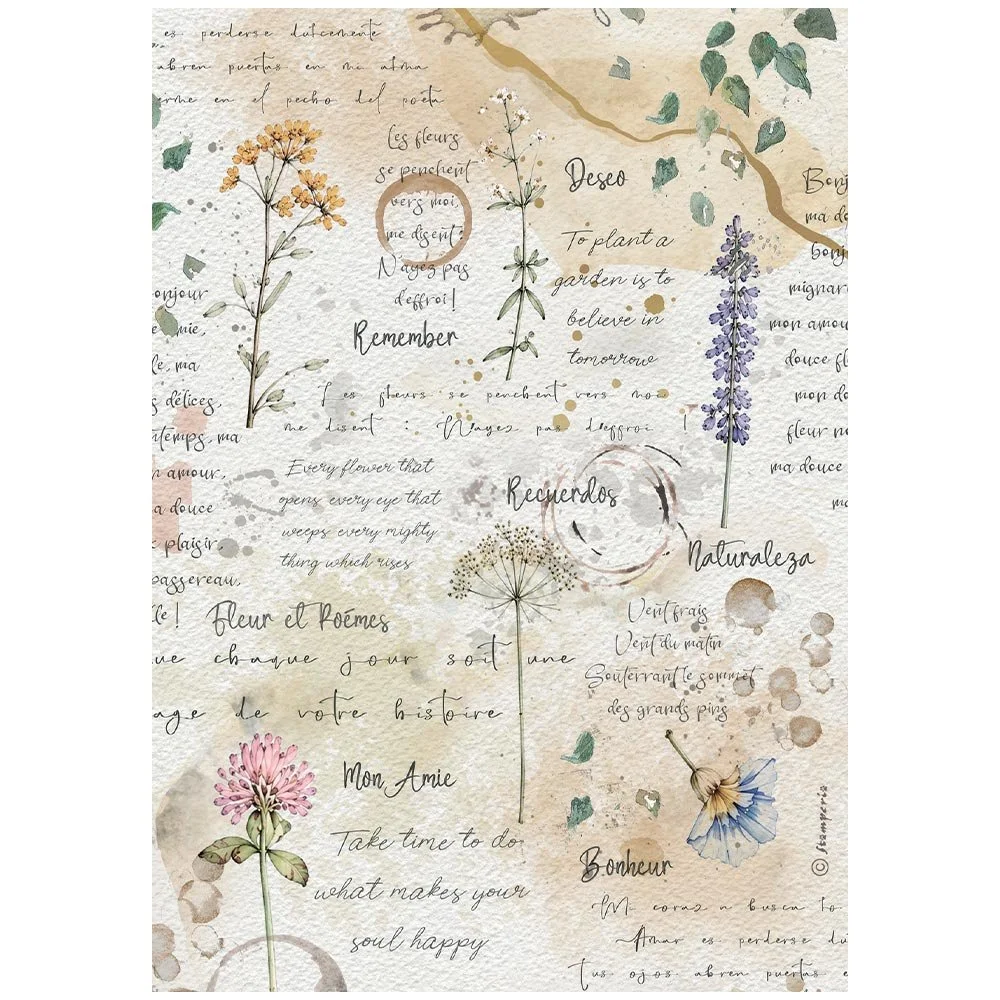 es perderse dulcemente
abren puertas en mi alma
erme en el pecho del poeta
Les fleurs
se penchent
vers moi,
me disent:
N'ayez pas
d'effroi!
Deseo
To plant a
garden is to
believe in
tomorrow
Bonj
ma do
bonj
mignar
mon amou
douce fl
mon do
fleur
ma douce
onjour
mie,
le, ma
s délices,
ntemps, ma
n amour,
a douce
e plaisir,
passereau,
le!
Remember
Les fleurs se penchent vers moi
me disent : N'ayez pas d'effroi !
Every flower that
opens every eye that
weeps every mighty
thing which rises
Recuerdos
Naturaleza
Fleur et Poémes
ue chaque jour soit une
age de votre histoire
Vent frais
Vent du matin
Souterrant le sommet
des grands pins
Mon Amie
Take time to do
what makes your
soul happy
Bonheur
Mi corazon busca lo
Amar es perderse du
Tus ojos abren puertas e
© Stamperia